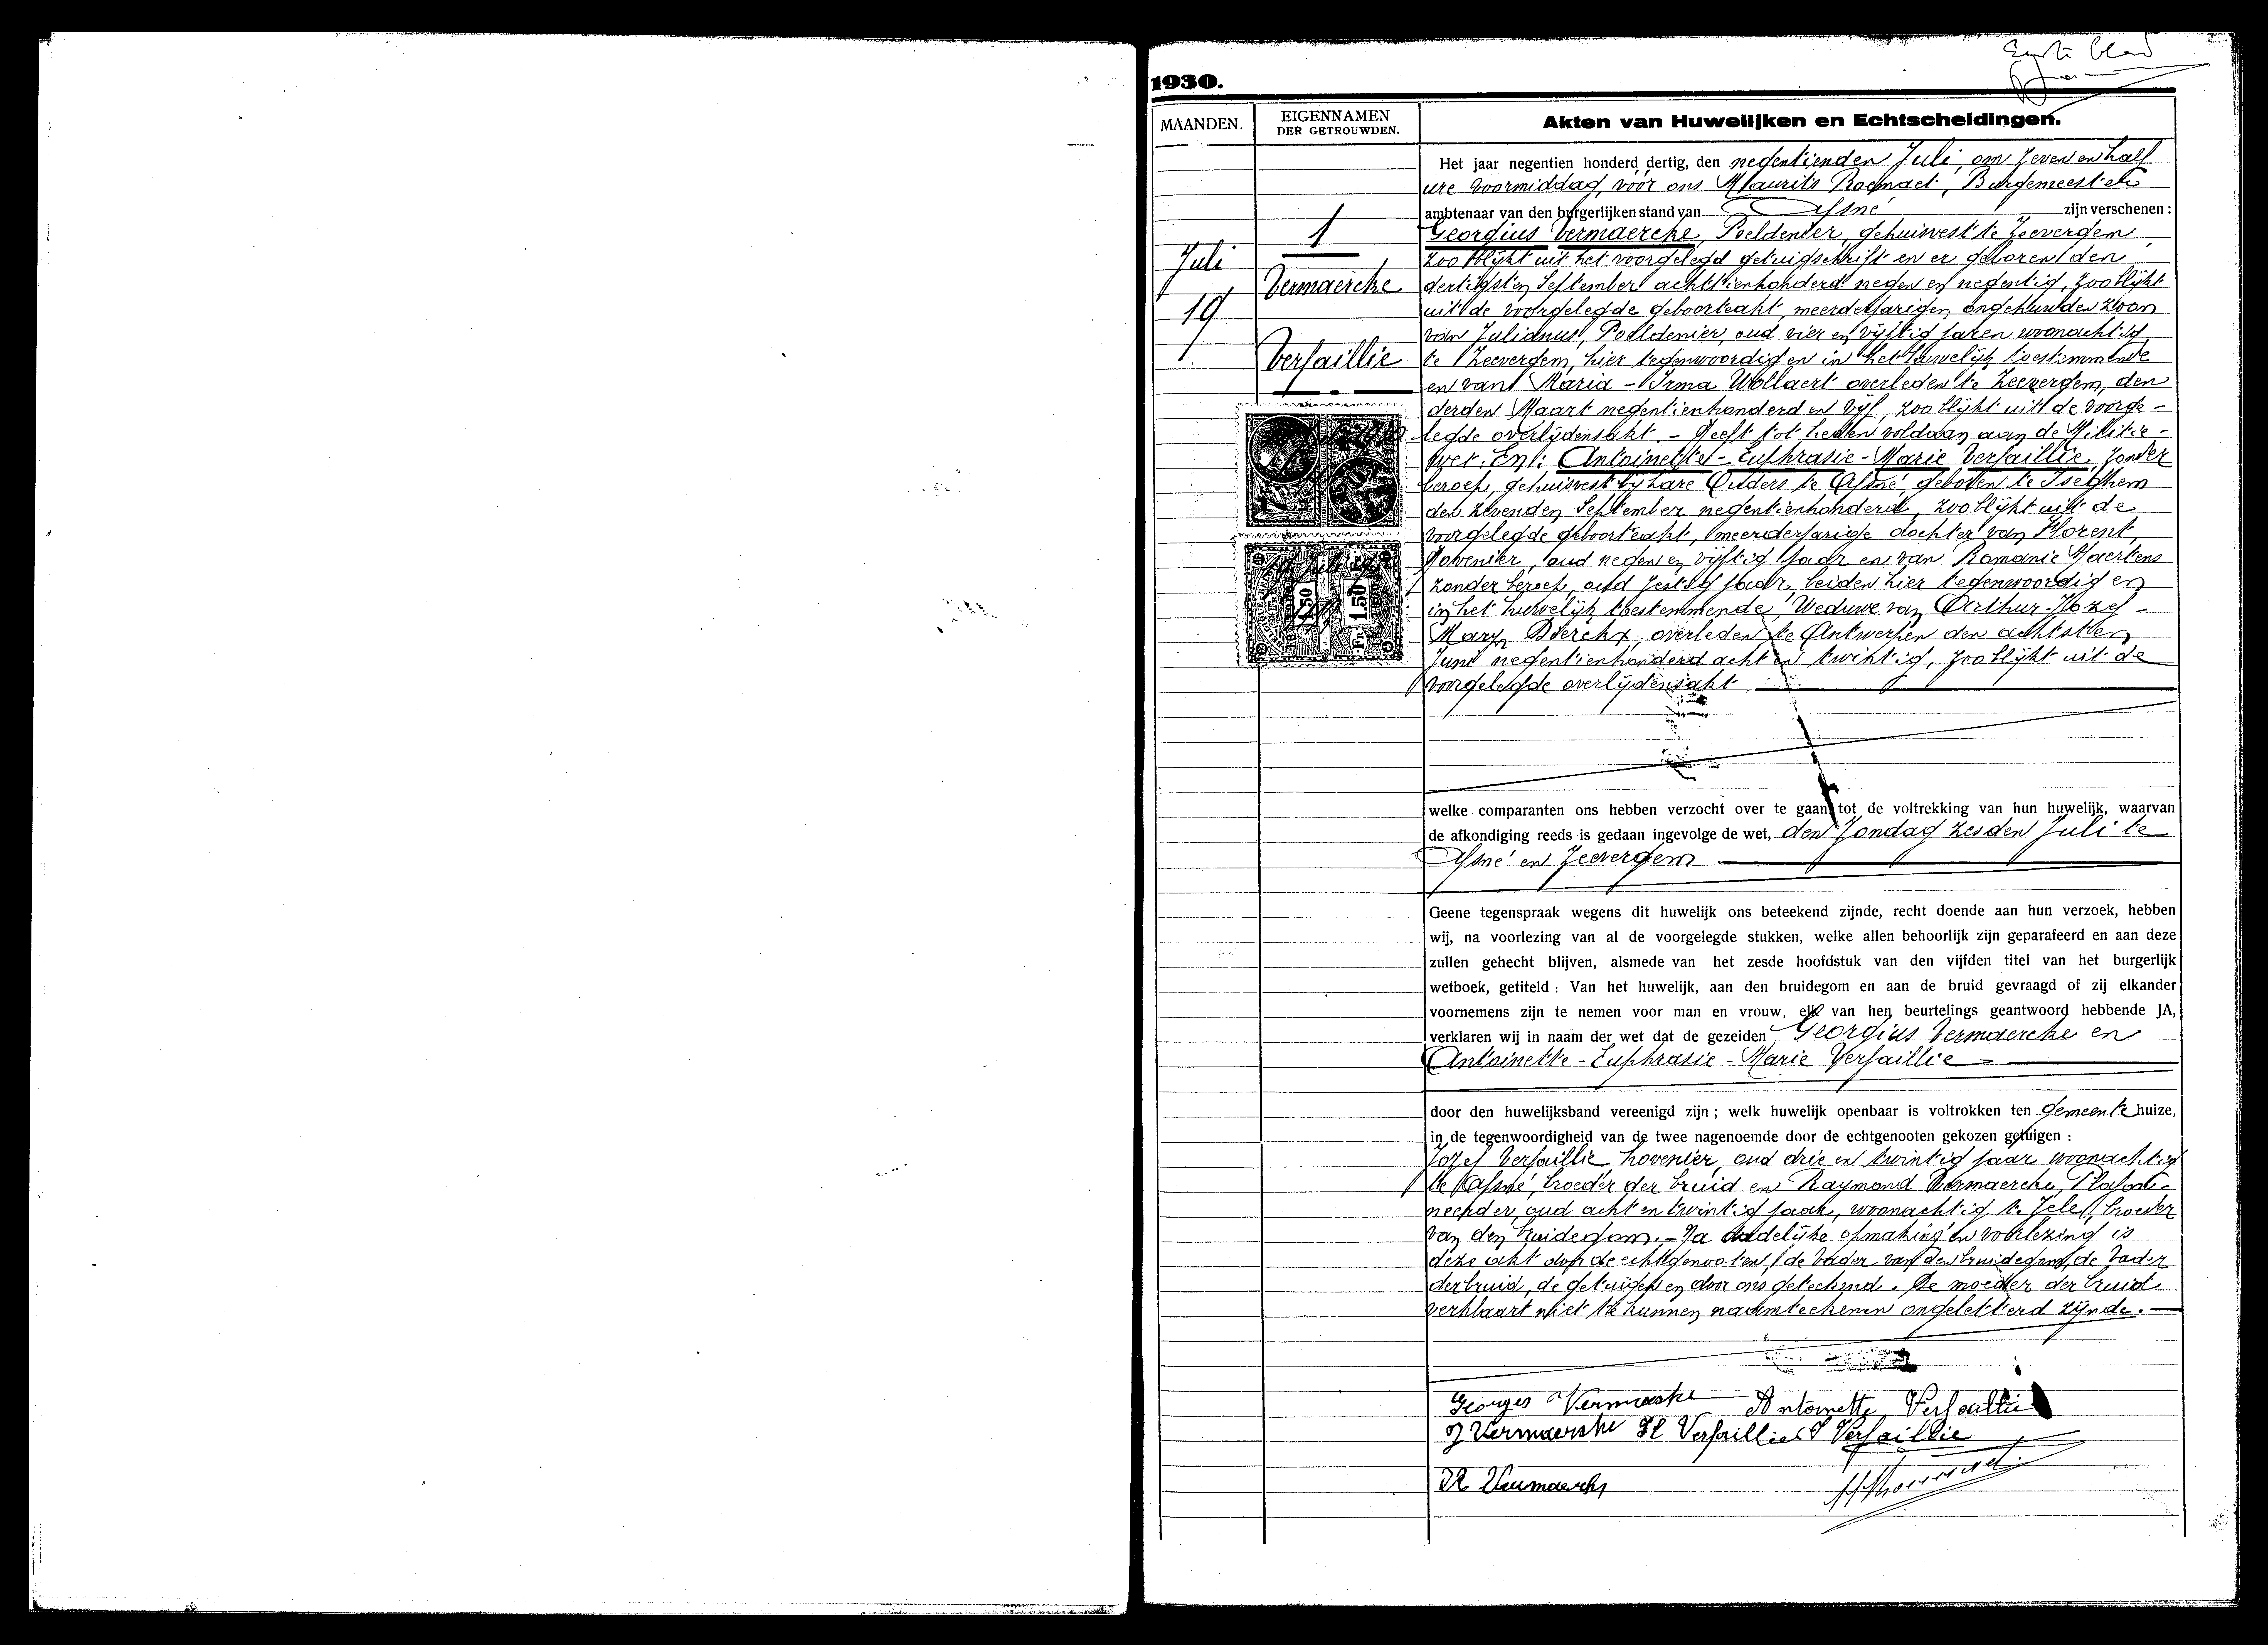 Eerste blad
1930.
MAANDEN.
EIGENNAMEN
DER GETROUWDEN.
Akten van Huwelijken en Echtscheidingen.
1
Juli
19
Vermaercke
Versaillie
FR. 1.50
1.50
Het jaar negentien honderd dertig, den negentienden Juli, om zeven en half
ure voormiddag, vóór ons Maurits Roegnaet, Burgemeester
ambtenaar van den burgerlijken stand van Afsné zijn verschenen :
Georgius Vermaercke, Poeldenier, gehuisvest te Zeevergem
zoo blijkt uit het voorgelegd getuigschrift en er geboren den
dertigsten September achttienhonderd negen en negentig, zoo blijkt
uit de voorgelegde geboorteakt, meerderjarigen ongehuwden zoon
van Julianus, Poeldenier, oud vier en vijftig jaren woonachtig
te Zeevergem, hier tegenwoordig en in het huwelijk toestemmende
en van Maria - Irma Wollaert overleden te Zeevergem, den
derden Maart negentienhonderd en vijf, zoo blijkt uit de voorge-
legde overlijdensakt. - Heeft tot heden voldaan aan de Militie-
wet. En: Antoinette - Euphrasie - Marie Versaillie, zonder
beroep, gehuisvest bij hare Ouders te Afsné, geboren te Iseghem
den zevenden September negentienhonderd, zoo blijkt uit de
voorgelegde geboorteakt, meerderjarige dochter van Florent,
Hovenier, oud negen en vijftig jaar en van Romanie Maertens
zonder beroep, oud zestig jaar, beiden hier tegenwoordig en
in het huwelijk toestemmende, Weduwe van Arthur-Jozef-
Marx Dierckx, overleden te Antwerpen den achtsten
Juni negentienhonderd acht en twintig, zoo blijkt uit de
voorgelegde overlijdensakt
welke comparanten ons hebben verzocht over te gaan tot de voltrekking van hun huwelijk, waarvan
de afkondiging reeds is gedaan ingevolge de wet, den Zondag zesden Juli te
Afsné en Zeevergem
Geene tegenspraak wegens dit huwelijk ons beteekend zijnde, recht doende aan hun verzoek, hebben
wij, na voorlezing van al de voorgelegde stukken, welke allen behoorlijk zijn geparafeerd en aan deze
zullen gehecht blijven, alsmede van het zesde hoofdstuk van den vijfden titel van het burgerlijk
wetboek, getiteld : Van het huwelijk, aan den bruidegom en aan de bruid gevraagd of zij elkander
voornemens zijn te nemen voor man en vrouw, elk van hen beurtelings geantwoord hebbende JA,
verklaren wij in naam der wet dat de gezeiden Georgius Vermaercke en
Antoinette - Euphrasie - Marie Versaillie
door den huwelijksband vereenigd zijn ; welk huwelijk openbaar is voltrokken ten gemeentehuize,
in de tegenwoordigheid van de twee nagenoemde door de echtgenooten gekozen getuigen :
Jozef Versaillie hovenier, oud drie en twintig jaar woonachtig
te Afsné, broeder der bruid en Raymond Vermaercke, Plafon-
neerder, oud acht en twintig jaar, woonachtig te broeder
van den bruidegom. - Na dadelijke opmaking en voorlezing is
deze akt door de echtgenooten, de vader van den bruidegom, de vader
der bruid, de getuigen en door ons geteekend. De moeder der bruid
verklaart niet te kunnen naamteekenen ongeletterd zijnde.
Georges Vermaercke Antoinette Versaillie
J Vermaercke Fl Versaillie J Versaillie
R Vermaercke